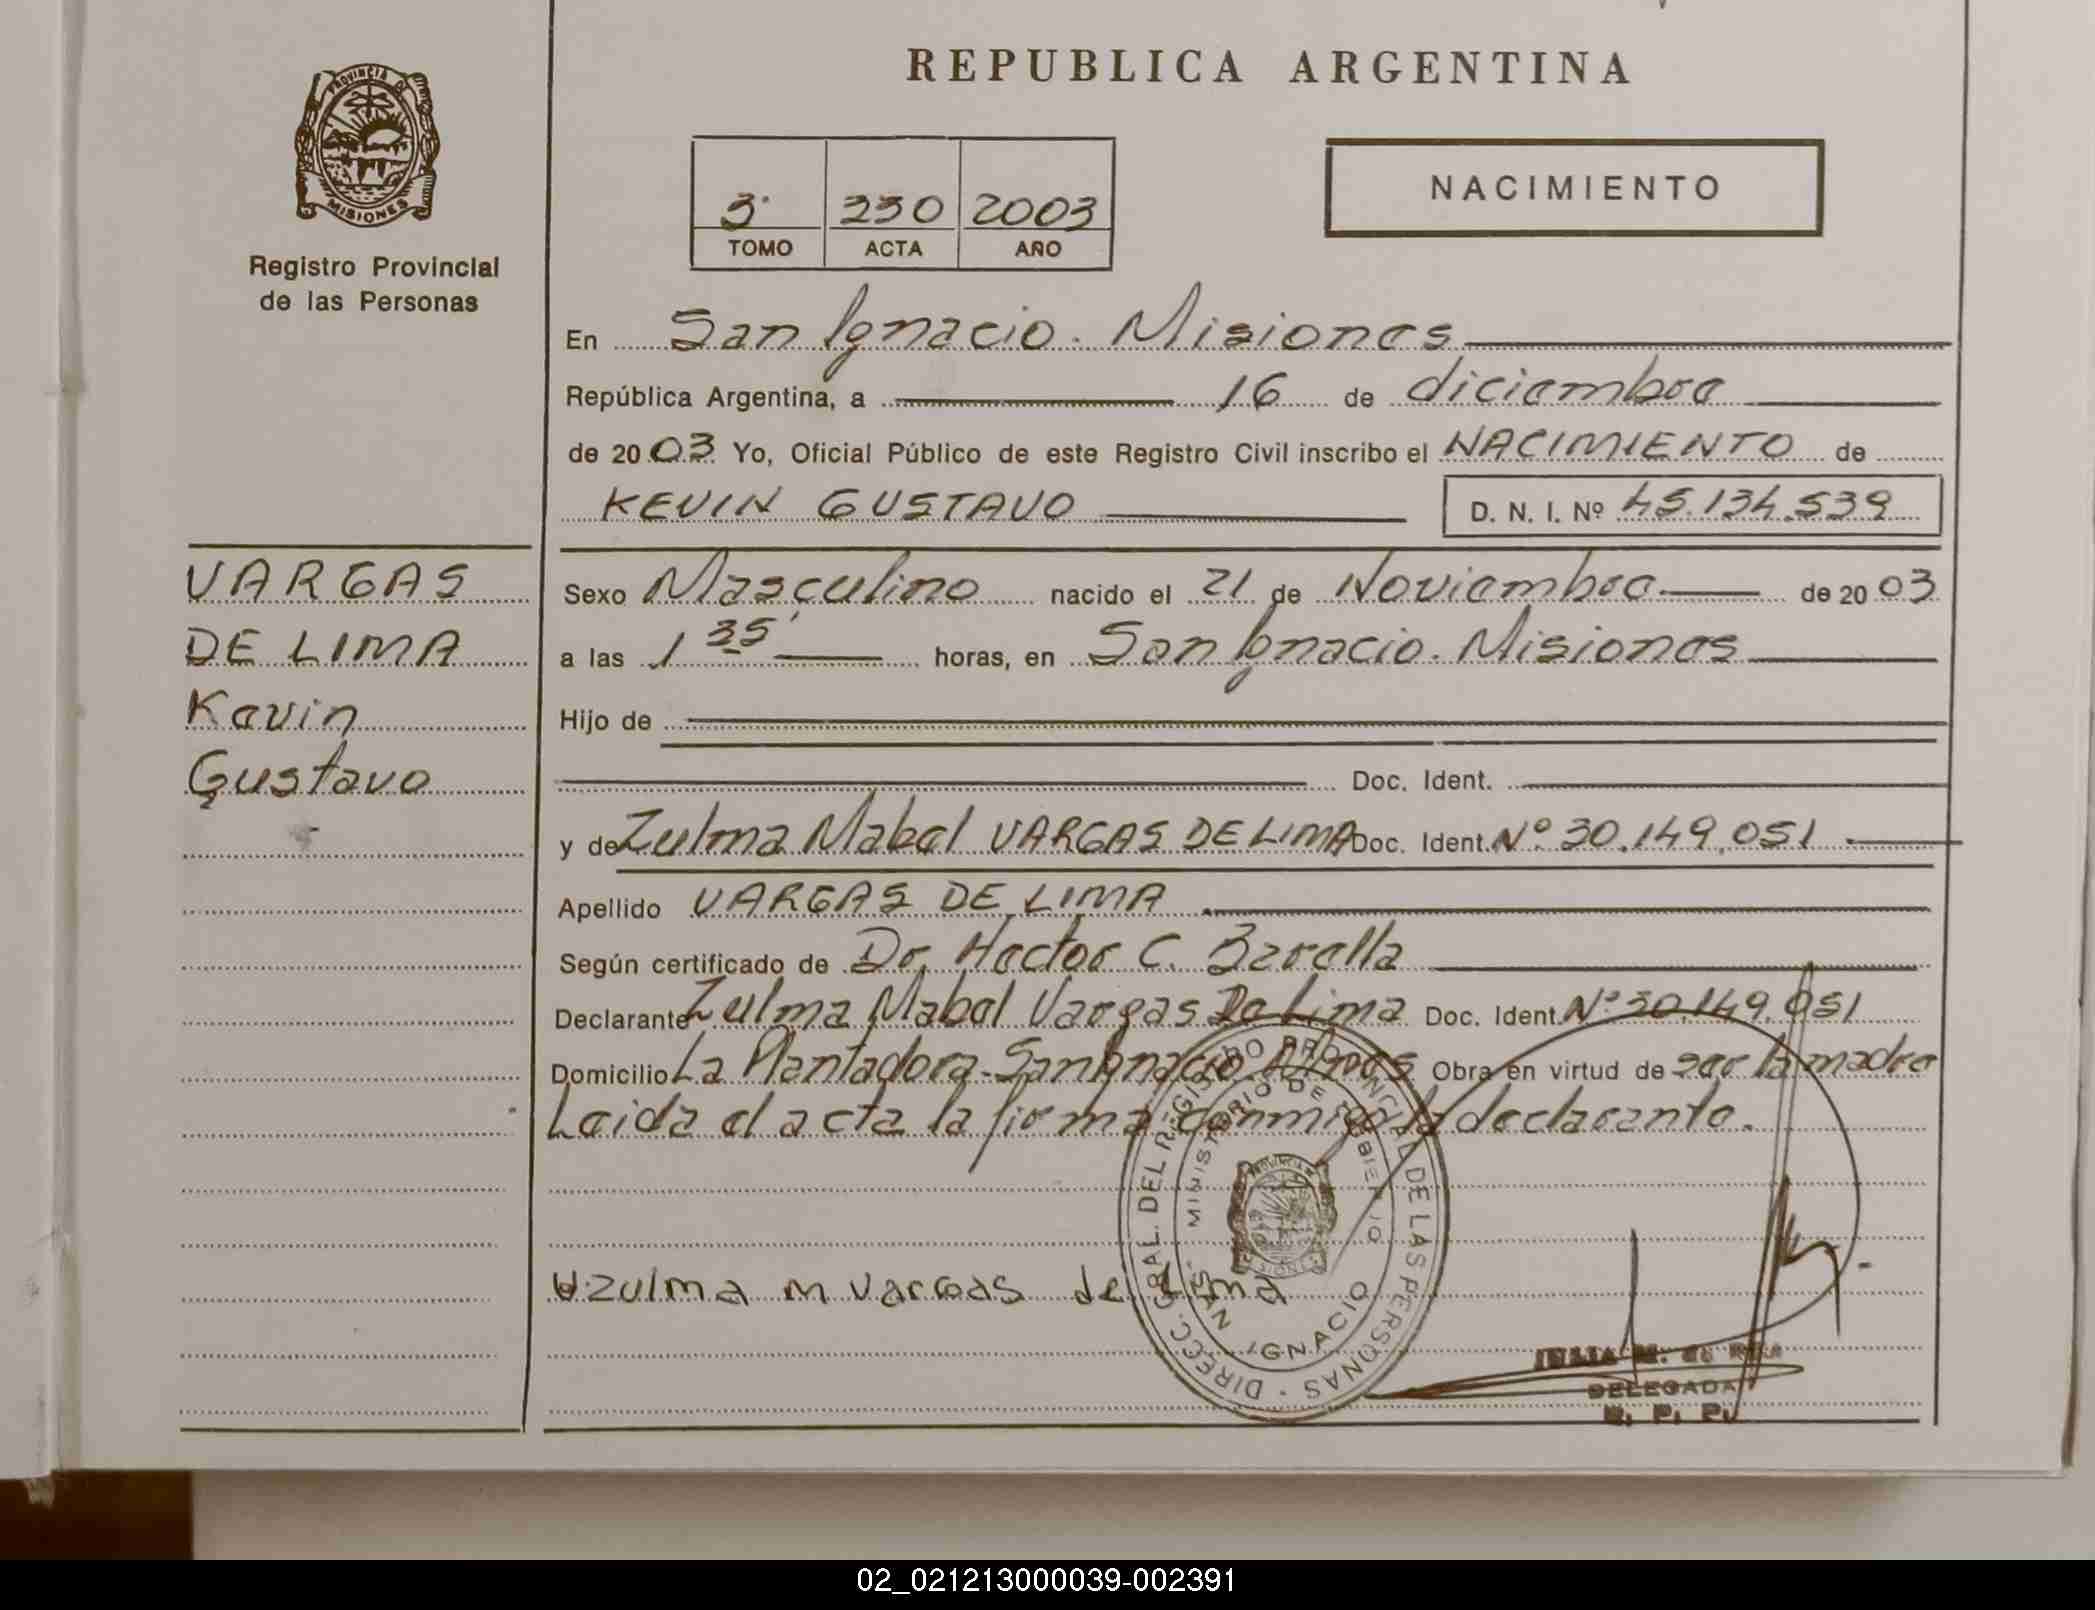 REPUBLICA ARGENTINA
PROVINCIA DE
MISIONES
Registro Provincial
de las Personas
3º 230 2003
TOMO ACTA AÑO
NACIMIENTO
En San Ignacio. Misiones
República Argentina, a 16 de diciembre
de 2003 Yo, Oficial Público de este Registro Civil inscribo el NACIMIENTO de
KEVIN GUSTAVO D. N. I. Nº 45.134.539
VARGAS
DE LIMA
Kevin
Gustavo
Sexo Masculino nacido el 21 de Noviembre de 2003
a las 1 35' horas, en San Ignacio. Misiones
Hijo de
Doc. Ident.
y de Zulma Mabel VARGAS DE LIMA Doc. Ident. Nº 30.149.051
Apellido VARGAS DE LIMA
Según certificado de Dr. Hector C. Barella
Declarante Zulma Mabel Vargas De Lima Doc. Ident. Nº 30.149.051
Domicilio La Plantadora. San Ignacio Mnes Obra en virtud de ser la madre
Leida el acta la firma conmigo la declarante.
zulma m vargas de Lima
DIRECC. GRAL. DEL REGISTRO PROVINCIAL DE LAS PERSONAS
MINISTERIO DE GOBIERNO
SAN IGNACIO
JULIA M. de
DELEGADA
R. P. P.
02_021213000039-002391